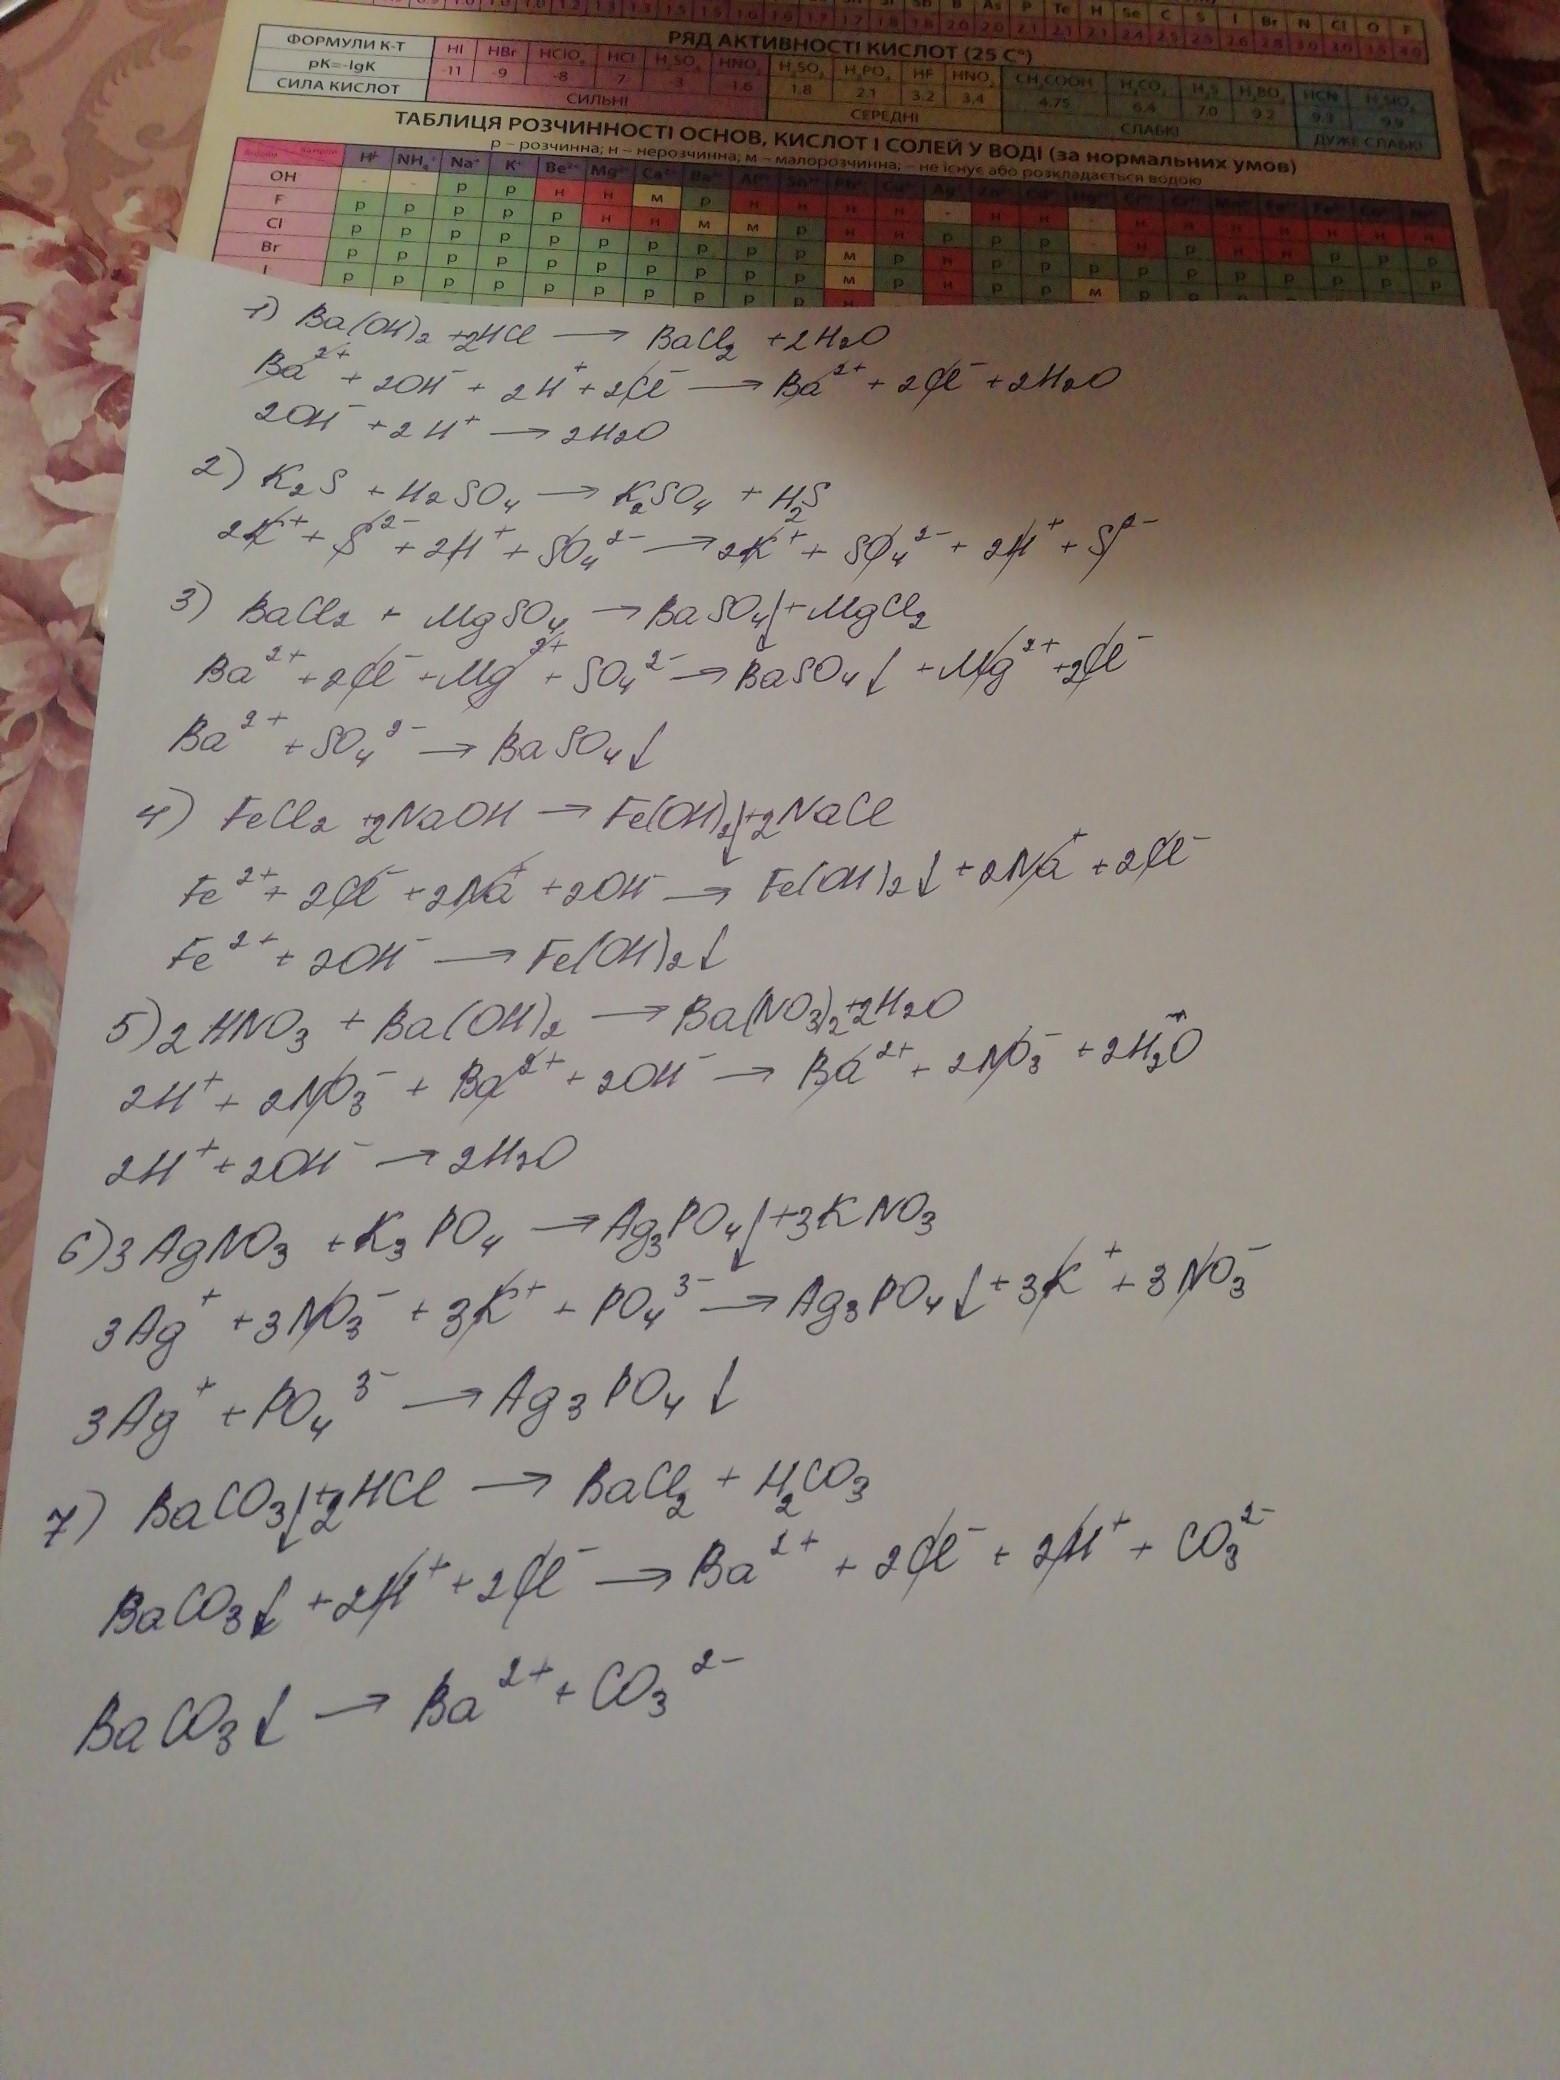 B As P Te H Se C S I Br N Cl O F
2.0 2.0 2.1 2.1 2.1 2.4 2.5 2.5 2.6 2.8 3.0 3.0 3.5 4.0
РЯД АКТИВНОСТІ КИСЛОТ (25 C°)
ФОРМУЛИ К-Т HI HBr HClO₄ HCl H₂SO₄ HNO₃ H₂SO₃ H₃PO₄ HF HNO₂ CH₃COOH H₂CO₃ H₂S H₃BO₃ HCN H₂SiO₃
pK=-lgK -11 -9 -8 -7 -3 -1.6 1.8 2.1 3.2 3.4 4.75 6.4 7.0 9.2 9.3 9.9
СИЛА КИСЛОТ СИЛЬНІ СЕРЕДНІ СЛАБКІ ДУЖЕ СЛАБКІ
ТАБЛИЦЯ РОЗЧИННОСТІ ОСНОВ, КИСЛОТ І СОЛЕЙ У ВОДІ (за нормальних умов)
р – розчинна; н – нерозчинна; м – малорозчинна; – не існує або розкладається водою
H⁺ NH₄⁺ Na⁺ K⁺ Be²⁺ Mg²⁺ Ca²⁺ Ba²⁺ Al³⁺
OH - - р р н н м р н н н н - н н - н н н н н н н
F
Cl
Br
1) Ba(OH)₂ +2HCl → BaCl₂ +2H₂O
Ba²⁺ + 2OH⁻ + 2H⁺ + 2Cl⁻ → Ba²⁺ + 2Cl⁻ +2H₂O
2OH⁻ +2H⁺ → 2H₂O
2) K₂S + H₂SO₄ → K₂SO₄ + H₂S
2K⁺ + S²⁻ + 2H⁺ + SO₄²⁻ → 2K⁺ + SO₄²⁻ + 2H⁺ + S²⁻
3) BaCl₂ + MgSO₄ → BaSO₄↓ + MgCl₂
Ba²⁺ + 2Cl⁻ + Mg²⁺ + SO₄²⁻ → BaSO₄↓ + Mg²⁺ +2Cl⁻
Ba²⁺ + SO₄²⁻ → BaSO₄↓
4) FeCl₂ +2NaOH → Fe(OH)₂↓+2NaCl
Fe²⁺ + 2Cl⁻ + 2Na⁺ + 2OH⁻ → Fe(OH)₂↓ + 2Na⁺ + 2Cl⁻
Fe²⁺ + 2OH⁻ → Fe(OH)₂↓
5) 2HNO₃ + Ba(OH)₂ → Ba(NO₃)₂+2H₂O
2H⁺ + 2NO₃⁻ + Ba²⁺ + 2OH⁻ → Ba²⁺ + 2NO₃⁻ + 2H₂O
2H⁺ + 2OH⁻ → 2H₂O
6) 3AgNO₃ + K₃PO₄ → Ag₃PO₄↓ +3KNO₃
3Ag⁺ + 3NO₃⁻ + 3K⁺ + PO₄³⁻ → Ag₃PO₄↓ + 3K⁺ + 3NO₃⁻
3Ag⁺ + PO₄³⁻ → Ag₃PO₄↓
7) BaCO₃↓ +2HCl → BaCl₂ + H₂CO₃
BaCO₃↓ + 2H⁺ + 2Cl⁻ → Ba²⁺ + 2Cl⁻ + 2H⁺ + CO₃²⁻
BaCO₃↓ → Ba²⁺ + CO₃²⁻